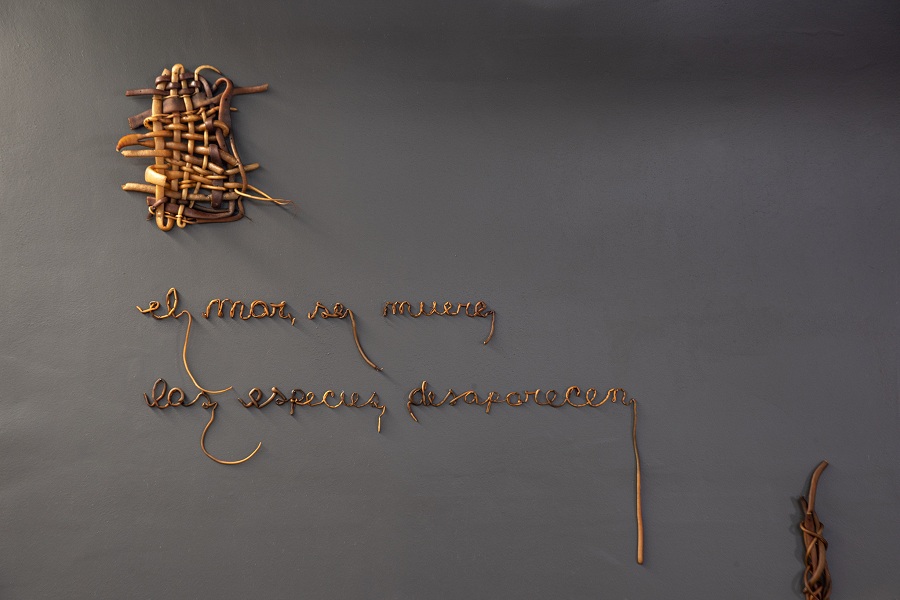 el mar, se muere
las especies desaparecen